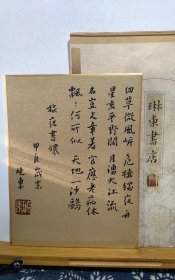 琳東書店
細草微風岸 危檣獨夜舟
星垂平野闊 月湧大江流
名豈文章著 官應老病休
飄飄何所似 天地一沙鷗
旅夜書懷
甲辰歲